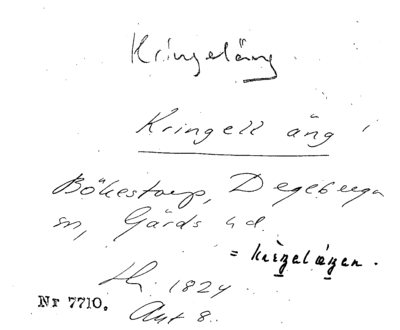 Kringeläng
Kringell äng
Bökestorp, Degeberga
sn, Gärds hd.
= kriŋelɛŋen.
1824
Nr 7710. Akt 8.